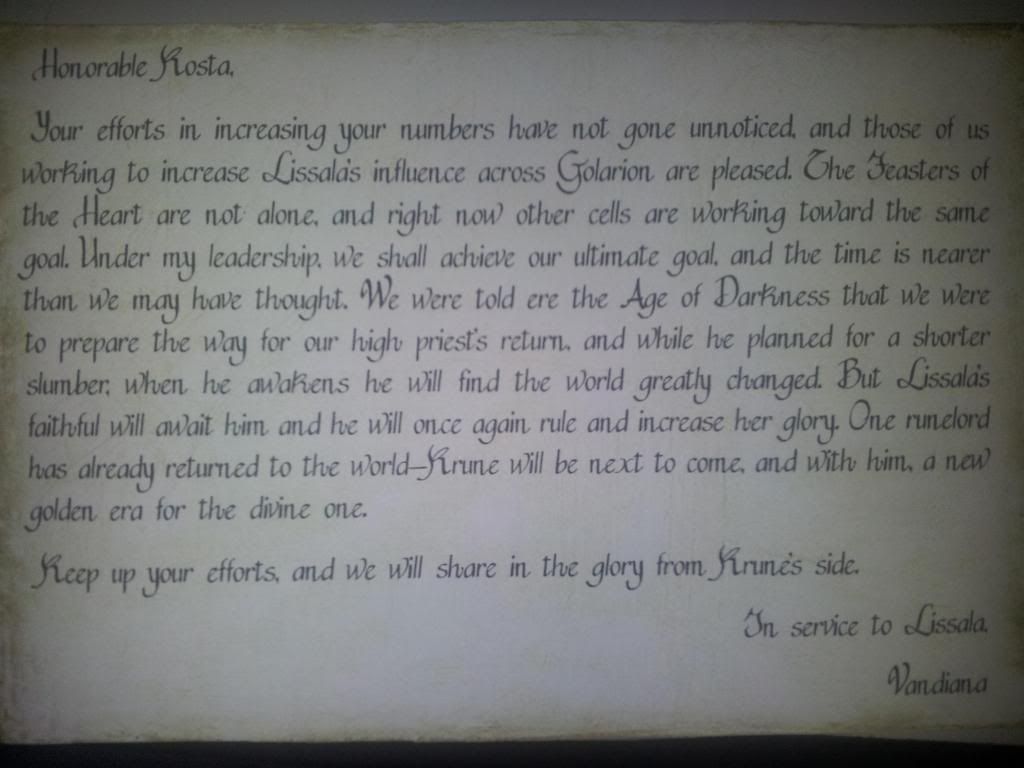 Honorable Kosta,
Your efforts in increasing your numbers have not gone unnoticed, and those of us
working to increase Lissala's influence across Golarion are pleased. The Feasters of
the Heart are not alone, and right now other cells are working toward the same
goal. Under my leadership, we shall achieve our ultimate goal, and the time is nearer
than we may have thought. We were told ere the Age of Darkness that we were
to prepare the way for our high priest's return, and while he planned for a shorter
slumber, when he awakens he will find the world greatly changed. But Lissala's
faithful will await him and he will once again rule and increase her glory. One runelord
has already returned to the world—Krune will be next to come, and with him, a new
golden era for the divine one.
Keep up your efforts, and we will share in the glory from Krune's side.
In service to Lissala,
Vandiana